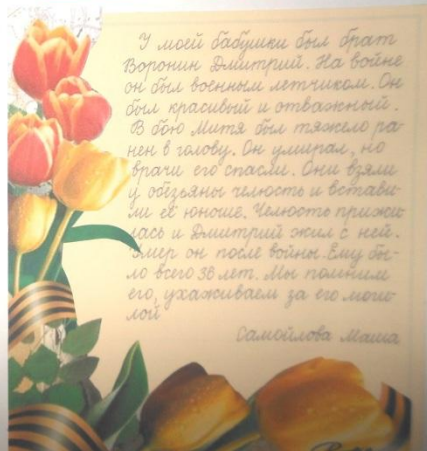 У моей бабушки был брат
Воронин Дмитрий. На войне
он был военным летчиком. Он
был красивый и отважный.
В бою Митя был тяжело ра-
нен в голову. Он умирал, но
врачи его спасли. Они взяли
у обезьяны челюсть и встави-
ли её юноше. Челюсть прижи-
лась и Дмитрий жил с ней.
Умер он после войны. Ему бы-
ло всего 38 лет. Мы помним
его, ухаживаем за его моги-
лой
Самойлова Маша